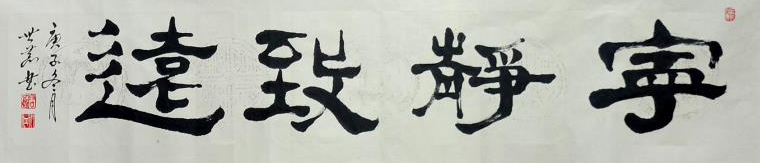 寧靜致遠
庚子冬月
世 书